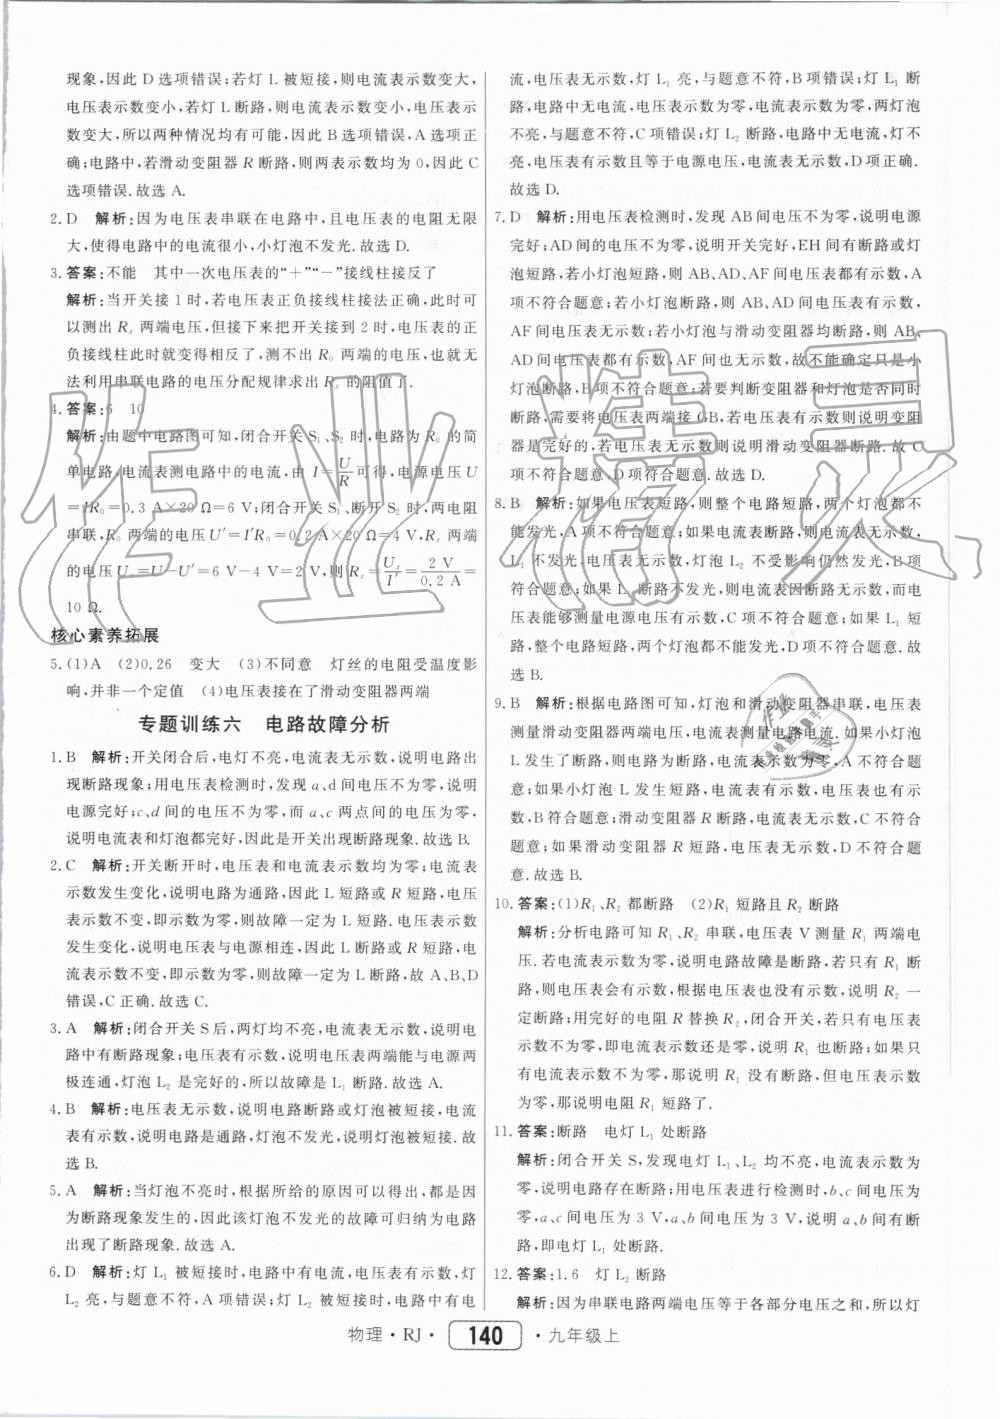 现象,因此 D 选项错误;若灯 L 被短接,则电流表示数变大,
电压表示数变小,若灯 L 断路,则电流表示数变小,电压表示
数变大,所以两种情况均有可能,因此 B 选项错误,A 选项正
确;电路中,若滑动变阻器 R 断路,则两表示数均为 0,因此 C
选项错误.故选 A.
2. D 解析:因为电压表串联在电路中,且电压表的电阻无限
大,使得电路中的电流很小,小灯泡不发光.故选 D.
3. 答案:不能 其中一次电压表的“+”“-”接线柱接反了
解析:当开关接 1 时,若电压表正负接线柱接法正确,此时可
以测出 Rx 两端电压,但接下来把开关接到 2 时,电压表的正
负接线柱此时就变得相反了,测不出 R0 两端的电压,也就无
法利用串联电路的电压分配规律求出 Rx 的阻值了.
4. 答案:6 10
解析:由题中电路图可知,闭合开关 S1、S2 时,电路为 R0 的简
单电路,电流表测电路中的电流,由 I=U/R可得,电源电压 U
=IR0=0.3 A×20 Ω=6 V;闭合开关 S1、断开 S2 时,两电阻
串联,R0 两端的电压 U′=I′R0=0.2 A×20 Ω=4 V,Rx 两端
的电压 Ux=U-U′=6 V-4 V=2 V,则 Rx=Ux/I′=2 V/0.2 A=
10 Ω.
核心素养拓展
5. (1)A (2)0.26 变大 (3)不同意 灯丝的电阻受温度影
响,并非一个定值 (4)电压表接在了滑动变阻器两端
专题训练六 电路故障分析
1. B 解析:开关闭合后,电灯不亮,电流表无示数,说明电路出
现断路现象;用电压表检测时,发现 a、d 间电压不为零,说明
电源完好;c、d 间的电压不为零,而 a、c 两点间的电压为零,
说明电流表和灯泡都完好,因此是开关出现断路现象.故选 B.
2. C 解析:开关断开时,电压表和电流表示数均为零;电流表
示数发生变化,说明电路为通路,因此 L 短路或 R 短路,电压
表示数不变,即示数为零,则故障一定为 L 短路.电压表示数
发生变化,说明电压表与电源相连,因此 L 断路或 R 短路,电
流表示数不变,即示数为零,则故障一定为 L 断路,故 A、B、D
错误,C 正确.故选 C.
3. A 解析:闭合开关 S 后,两灯均不亮,电流表无示数,说明电
路中有断路现象;电压表有示数,说明电压表两端能与电源两
极连通,灯泡 L2 是完好的,所以故障是 L1 断路.故选 A.
4. B 解析:电压表无示数,说明电路断路或灯泡被短接,电流
表有示数,说明电路是通路,灯泡不发光,说明灯泡被短接.故
选 B.
5. A 解析:当灯泡不亮时,根据所给的原因可以得出,都是因
为断路现象发生的,因此该灯泡不发光的故障可归纳为电路
出现了断路现象.故选 A.
6. D 解析:灯 L1 被短接时,电路中有电流,电压表有示数,灯
L2 亮,与题意不符,A 项错误;灯 L2 被短接时,电路中有电
流,电压表无示数,灯 L1 亮,与题意不符,B 项错误;灯 L1 断
路,电路中无电流,电压表示数为零,电流表示数为零,两灯泡
不亮,与题意不符,C 项错误;灯 L2 断路,电路中无电流,灯不
亮,电压表有示数且等于电源电压,电流表无示数,D 项正确.
故选 D.
7. D 解析:用电压表检测时,发现 AB 间电压不为零,说明电源
完好;AD 间的电压不为零,说明开关完好,EH 间有断路或灯
泡短路,若小灯泡短路,则 AB、AD、AF 间电压表都有示数,A
项不符合题意;若小灯泡断路,则 AB、AD 间电压表都有示数,
AF 间电压表无示数;若小灯泡与滑动变阻器均断路,则 AB、
AD 间电压表都有示数,AF 间电压表无示数,故不能确定只是小
灯泡断路,B 项不符合题意;若要判断变阻器和灯泡是否同时
断路,需要将电压表两端接 GB,若电压表有示数则说明变阻
器是完好的,若电压表无示数则说明滑动变阻器断路.故 C
项不符合题意,D 项符合题意.故选 D.
8. B 解析:如果电压表短路,则整个电路短路,两个灯泡都不
能发光,A 项不符合题意;如果电流表短路,则电流表无示数,
L1 不发光,电压表有示数,灯泡 L2 不受影响仍然发光,B 项
符合题意;如果 L2 断路,则 L2 不发光,则电流表无示数,而电
压表能够测量电源电压有示数,C 项不符合题意;如果 L1 短
路,整个电路短路,两个灯泡都不能发光,D 项不符合题意.故
选 B.
9. B 解析:根据电路图可知,灯泡和滑动变阻器串联,电压表
测量滑动变阻器两端电压,电流表测量电路电流.如果小灯泡
L 发生了断路,则电路为断路,电流表示数为零,A 不符合题
意;如果小灯泡 L 发生短路,电流表有示数,电压表有示数,B
符合题意;滑动变阻器 R 断路,电流表无示数,C 不符合
题意;如果滑动变阻器 R 短路,则电压表无示数,D 不符合题
意.故选 B.
10. 答案:(1)R1、R2 都断路 (2)R1 短路且 R2 断路
解析:分析电路可知 R1、R2 串联,电压表 V 测量 R1 两端电
压.若电流表示数为零,说明电路故障是断路,若只有 R1 断
路,则电压表会有示数,根据电压表也没有示数,说明 R2 一
定断路;用完好的电阻 R 替换 R2,闭合开关,若只有电压表
有示数,即电流表示数还是零,说明 R1 也断路;如果只
有电流表示数不为零,那说明 R1 没有断路,但电压表示数
为零,那说明电阻 R1 短路了.
11. 答案:断路 电灯 L1 处断路
解析:闭合开关 S,发现电灯 L1、L2 均不亮,电流表示数为
零,说明电路存在断路;用电压表进行检测时,b、c 间电压为
零,a、c 间电压为 3 V,a、b 间电压为 3 V,说明 a、b 间有断
路,即电灯 L1 处断路.
12. 答案:1.6 灯 L2 断路
解析:因为串联电路两端电压等于各部分电压之和,所以灯
物理·RJ· 140 ·九年级上
作业精灵